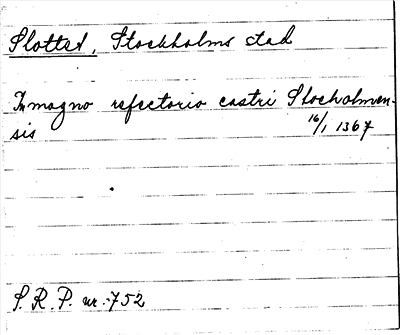 Slottet, Stockholms stad
In magno refectorio castri Stocholmen-
sis 16/1 1367
S. R. P. nr. 752